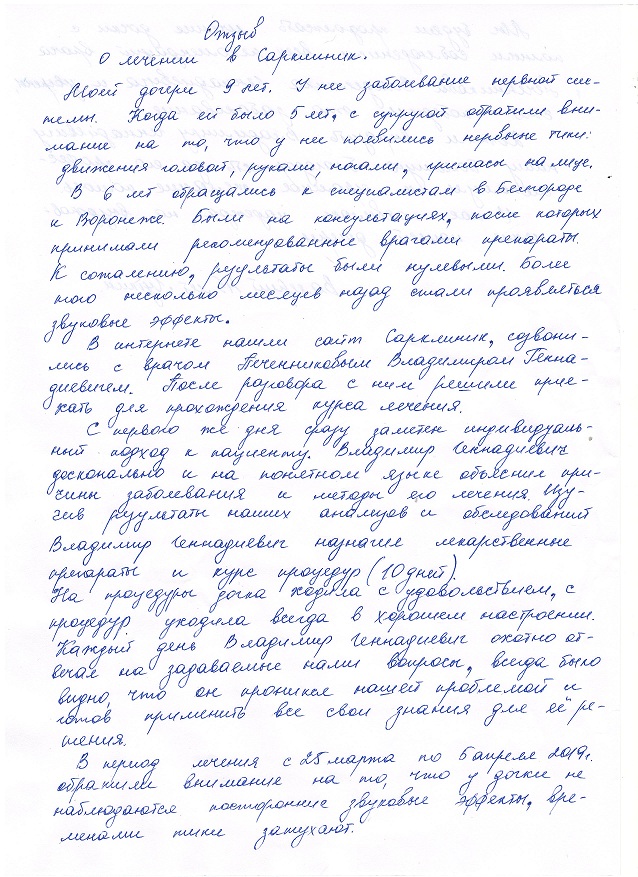 Отзыв
о лечении в Сарклиник.
Моей дочери 9 лет. У нее заболевание нервной сис-
темы. Когда ей было 5 лет, с супругой обратили вни-
мание на то, что у нее появились нервные тики:
движения головой, руками, ногами, гримасы на лице.
В 6 лет обращались к специалистам в Белгороде
и Воронеже. Были на консультациях, после которых
принимали рекомендованные врачами препараты.
К сожалению, результаты были нулевыми. Более
того несколько месяцев назад стали проявляться
звуковые эффекты.
В интернете нашли сайт Сарклиник, созвони-
лись с врачом Печенниковым Владимиром Генна-
диевичем. После разговора с ним решили прие-
хать для прохождения курса лечения.
С первого же дня сразу заметен индивидуаль-
ный подход к пациенту. Владимир Геннадиевич
досконально и на понятном языке объяснил при-
чины заболевания и методы его лечения. Изу-
чив результаты наших анализов и обследований
Владимир Геннадиевич назначил лекарственные
препараты и курс процедур (10 дней).
На процедуры дочка ходила с удовольствием, с
процедур уходила всегда в хорошем настроении.
Каждый день Владимир Геннадиевич охотно от-
вечал на задаваемые нами вопросы, всегда было
видно, что он проникся нашей проблемой и
готов применить все свои знания для её ре-
шения.
В период лечения с 25 марта по 5 апреля 2019г.
обратили внимание на то, что у дочки не
наблюдаются посторонние звуковые эффекты, вре-
менами тики затухают.